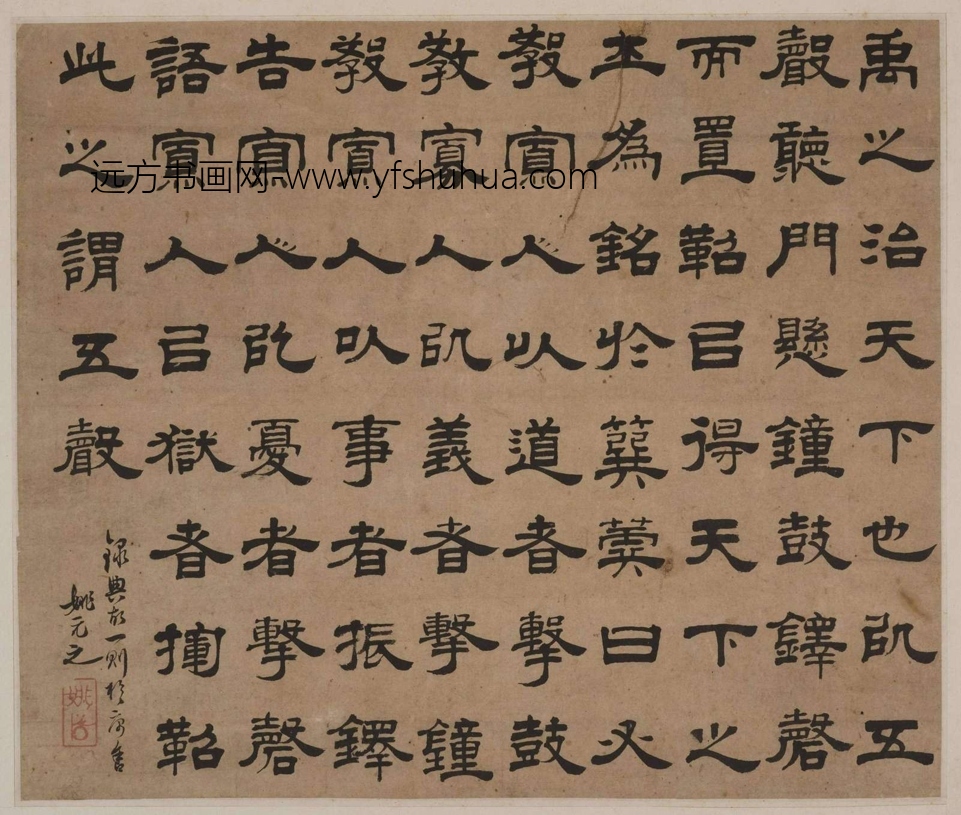 禹之治天下也㕥五
聲聽門懸鐘鼓鐸磬
而置鞀㠯得天下之
士為銘於簨曰
敎寡人以道者擊鼓
敎寡人㕥義者擊鐘
敎寡人以事者振鐸
告寡人㕥憂者擊磬
語寡人㠯獄者揮鞀
此之謂五聲
錄典故一則於京舍
姚元之
远方书画网 www.yfshuhua.com